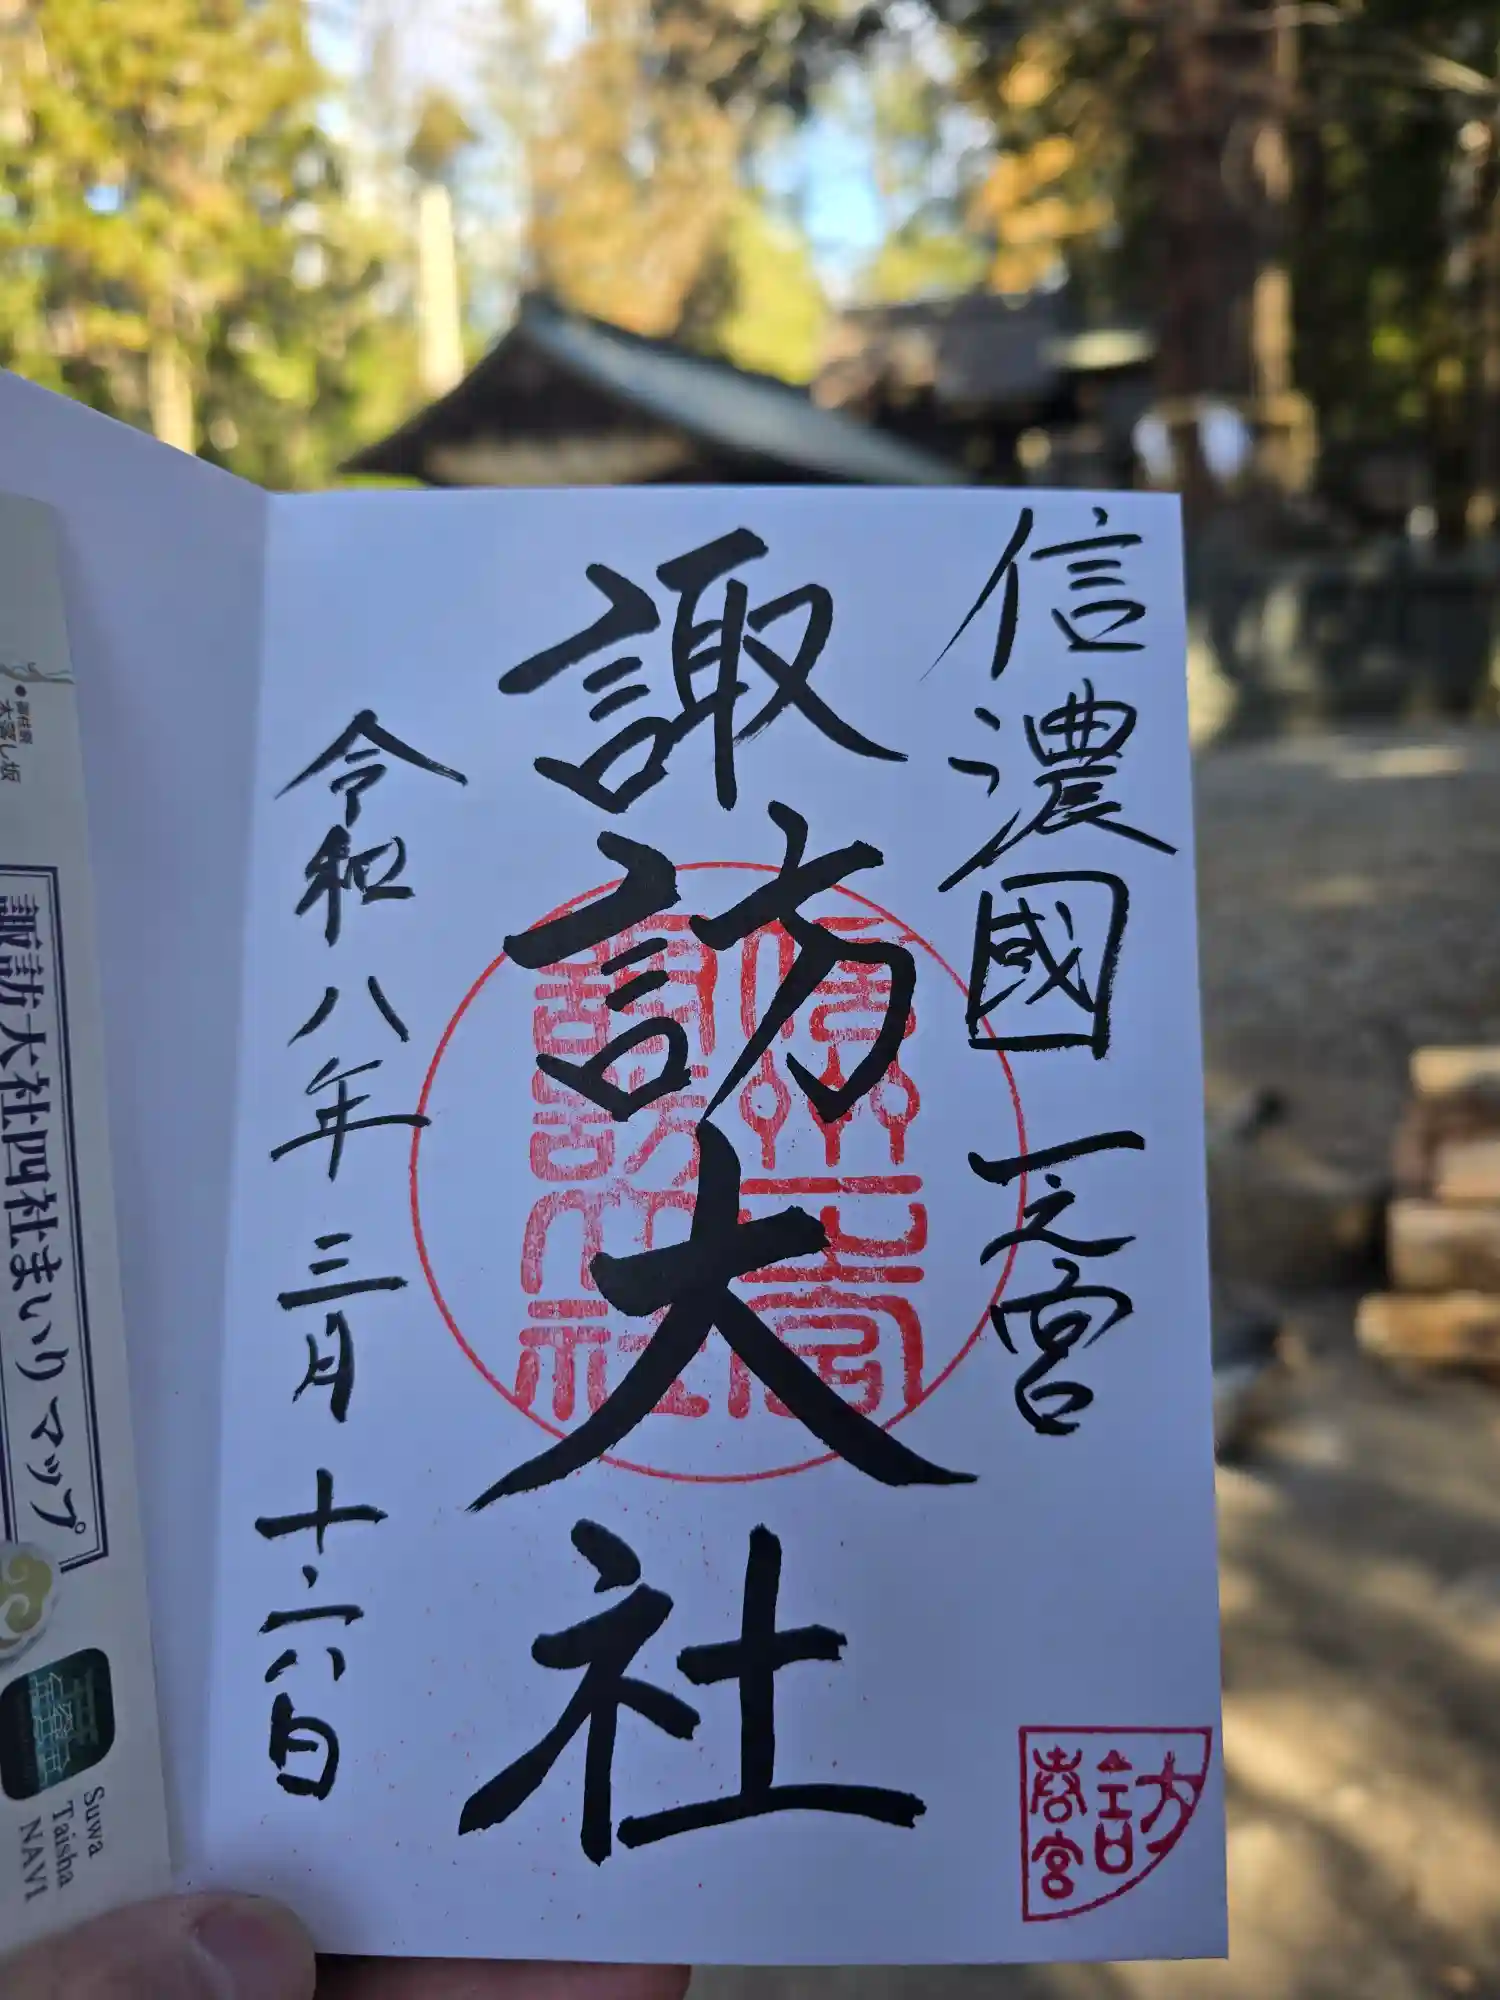 信濃國一之宮
諏訪大社
令和八年三月十六日
信州一之宮
諏訪大社
訪
春宮
諏訪大社四社まいりマップ
Suwa
Taisha
NAVI